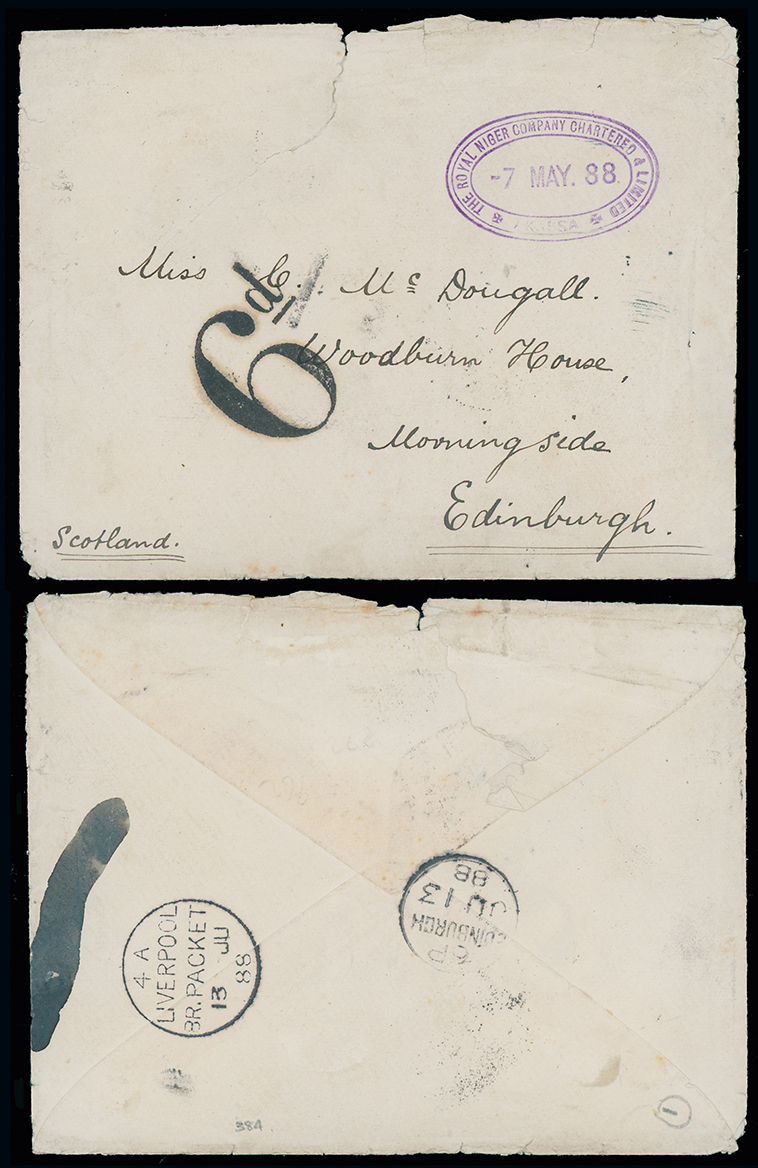 THE ROYAL NIGER COMPANY CHARTERED & LIMITED
-7 MAY. 88
AKASSA
6d
Miss C. Mc Dougall.
Woodburn House,
Morningside
Edinburgh.
Scotland.
4 A
LIVERPOOL
BR. PACKET
13 JU
88
6P
EDINBURGH
JU 13
88
384
1